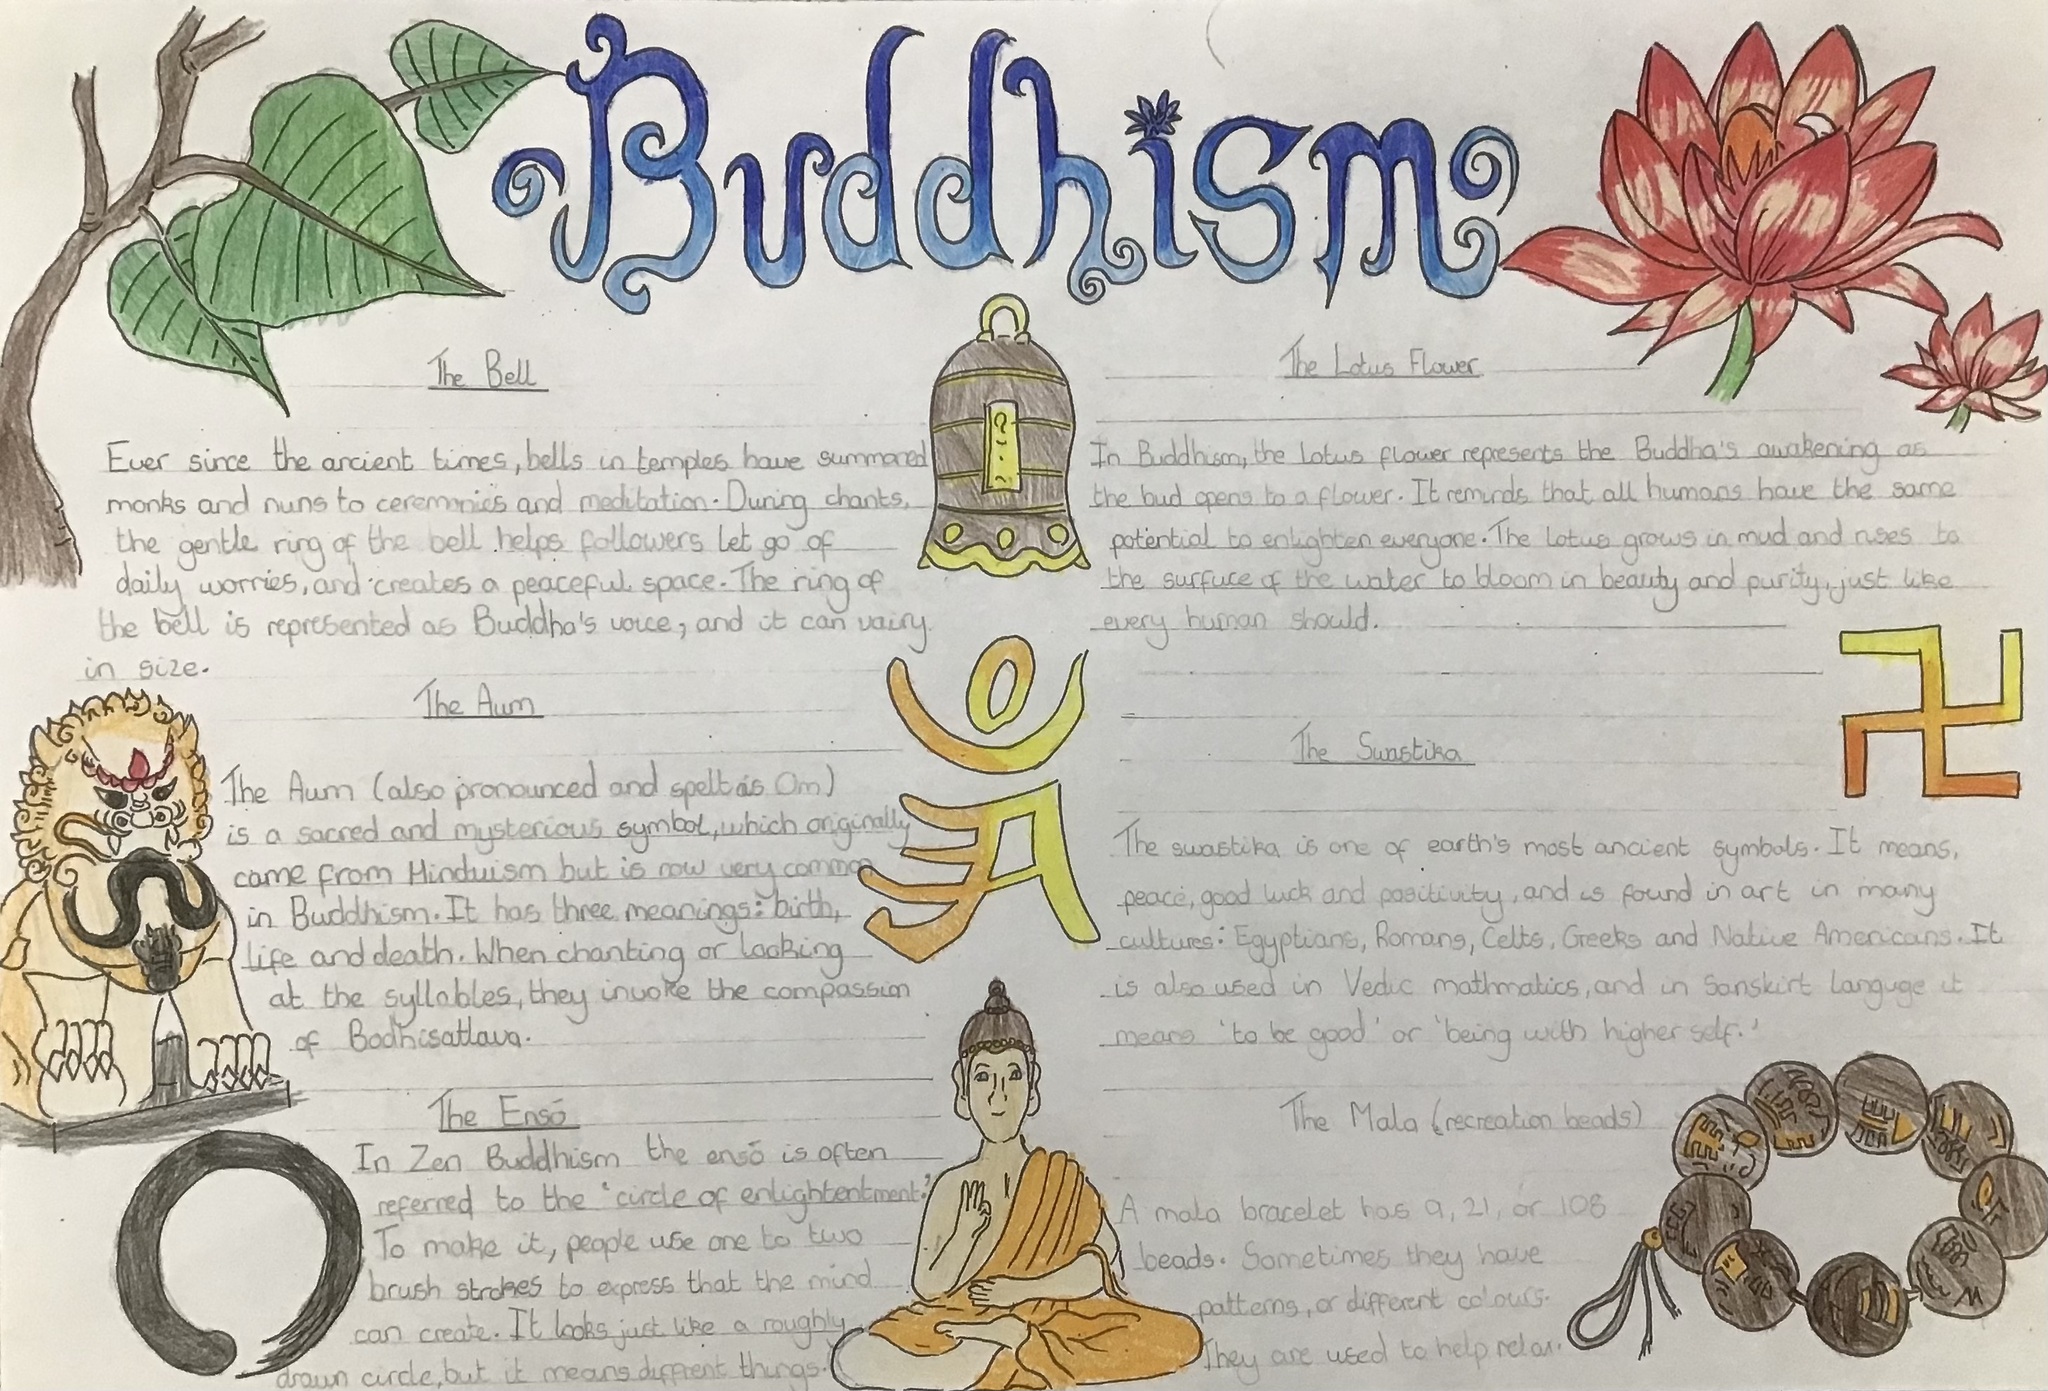 Buddhism
The Bell
Ever since the ancient times, bells in temples have summoned
monks and nuns to ceremonies and meditation. During chants,
the gentle ring of the bell helps followers let go of
daily worries, and creates a peaceful space. The ring of
the bell is represented as Buddha's voice, and it can vairy
in size.
The Aum
The Aum (also pronounced and spelt as Om)
is a sacred and mysterious symbol, which originally
came from Hinduism but is now very common
in Buddhism. It has three meanings: birth,
life and death. When chanting or looking
at the syllables, they invoke the compassion
of Bodhisatlava.
The Ensō
In Zen Buddhism the ensō is often
referred to the 'circle of enlightentment.'
To make it, people use one to two
brush strokes to express that the mind
can create. It looks just like a roughly
drawn circle, but it means diffrent things.
The Lotus Flower
In Buddhism, the lotus flower represents the Buddha's awakening as
the bud opens to a flower. It reminds that all humans have the same
potential to enlighten everyone. The lotus grows in mud and rises to
the surface of the water to bloom in beauty and purity, just like
every human should.
The Swastika
The swastika is one of earth's most ancient symbols. It means,
peace, good luck and positivity, and is found in art in many
cultures: Egyptians, Romans, Celts, Greeks and Native Americans. It
is also used in Vedic mathmatics, and in Sanskirt languge it
means 'to be good' or 'being with higher self.'
The Mala (recreation beads)
A mala bracelet has 9, 21, or 108
beads. Sometimes they have
patterns, or different colours.
They are used to help relax.